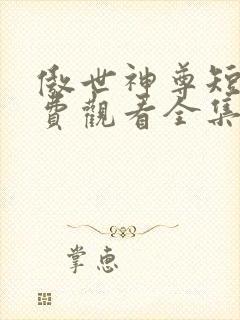 傲世神尊短
費觀看全集
掌惠